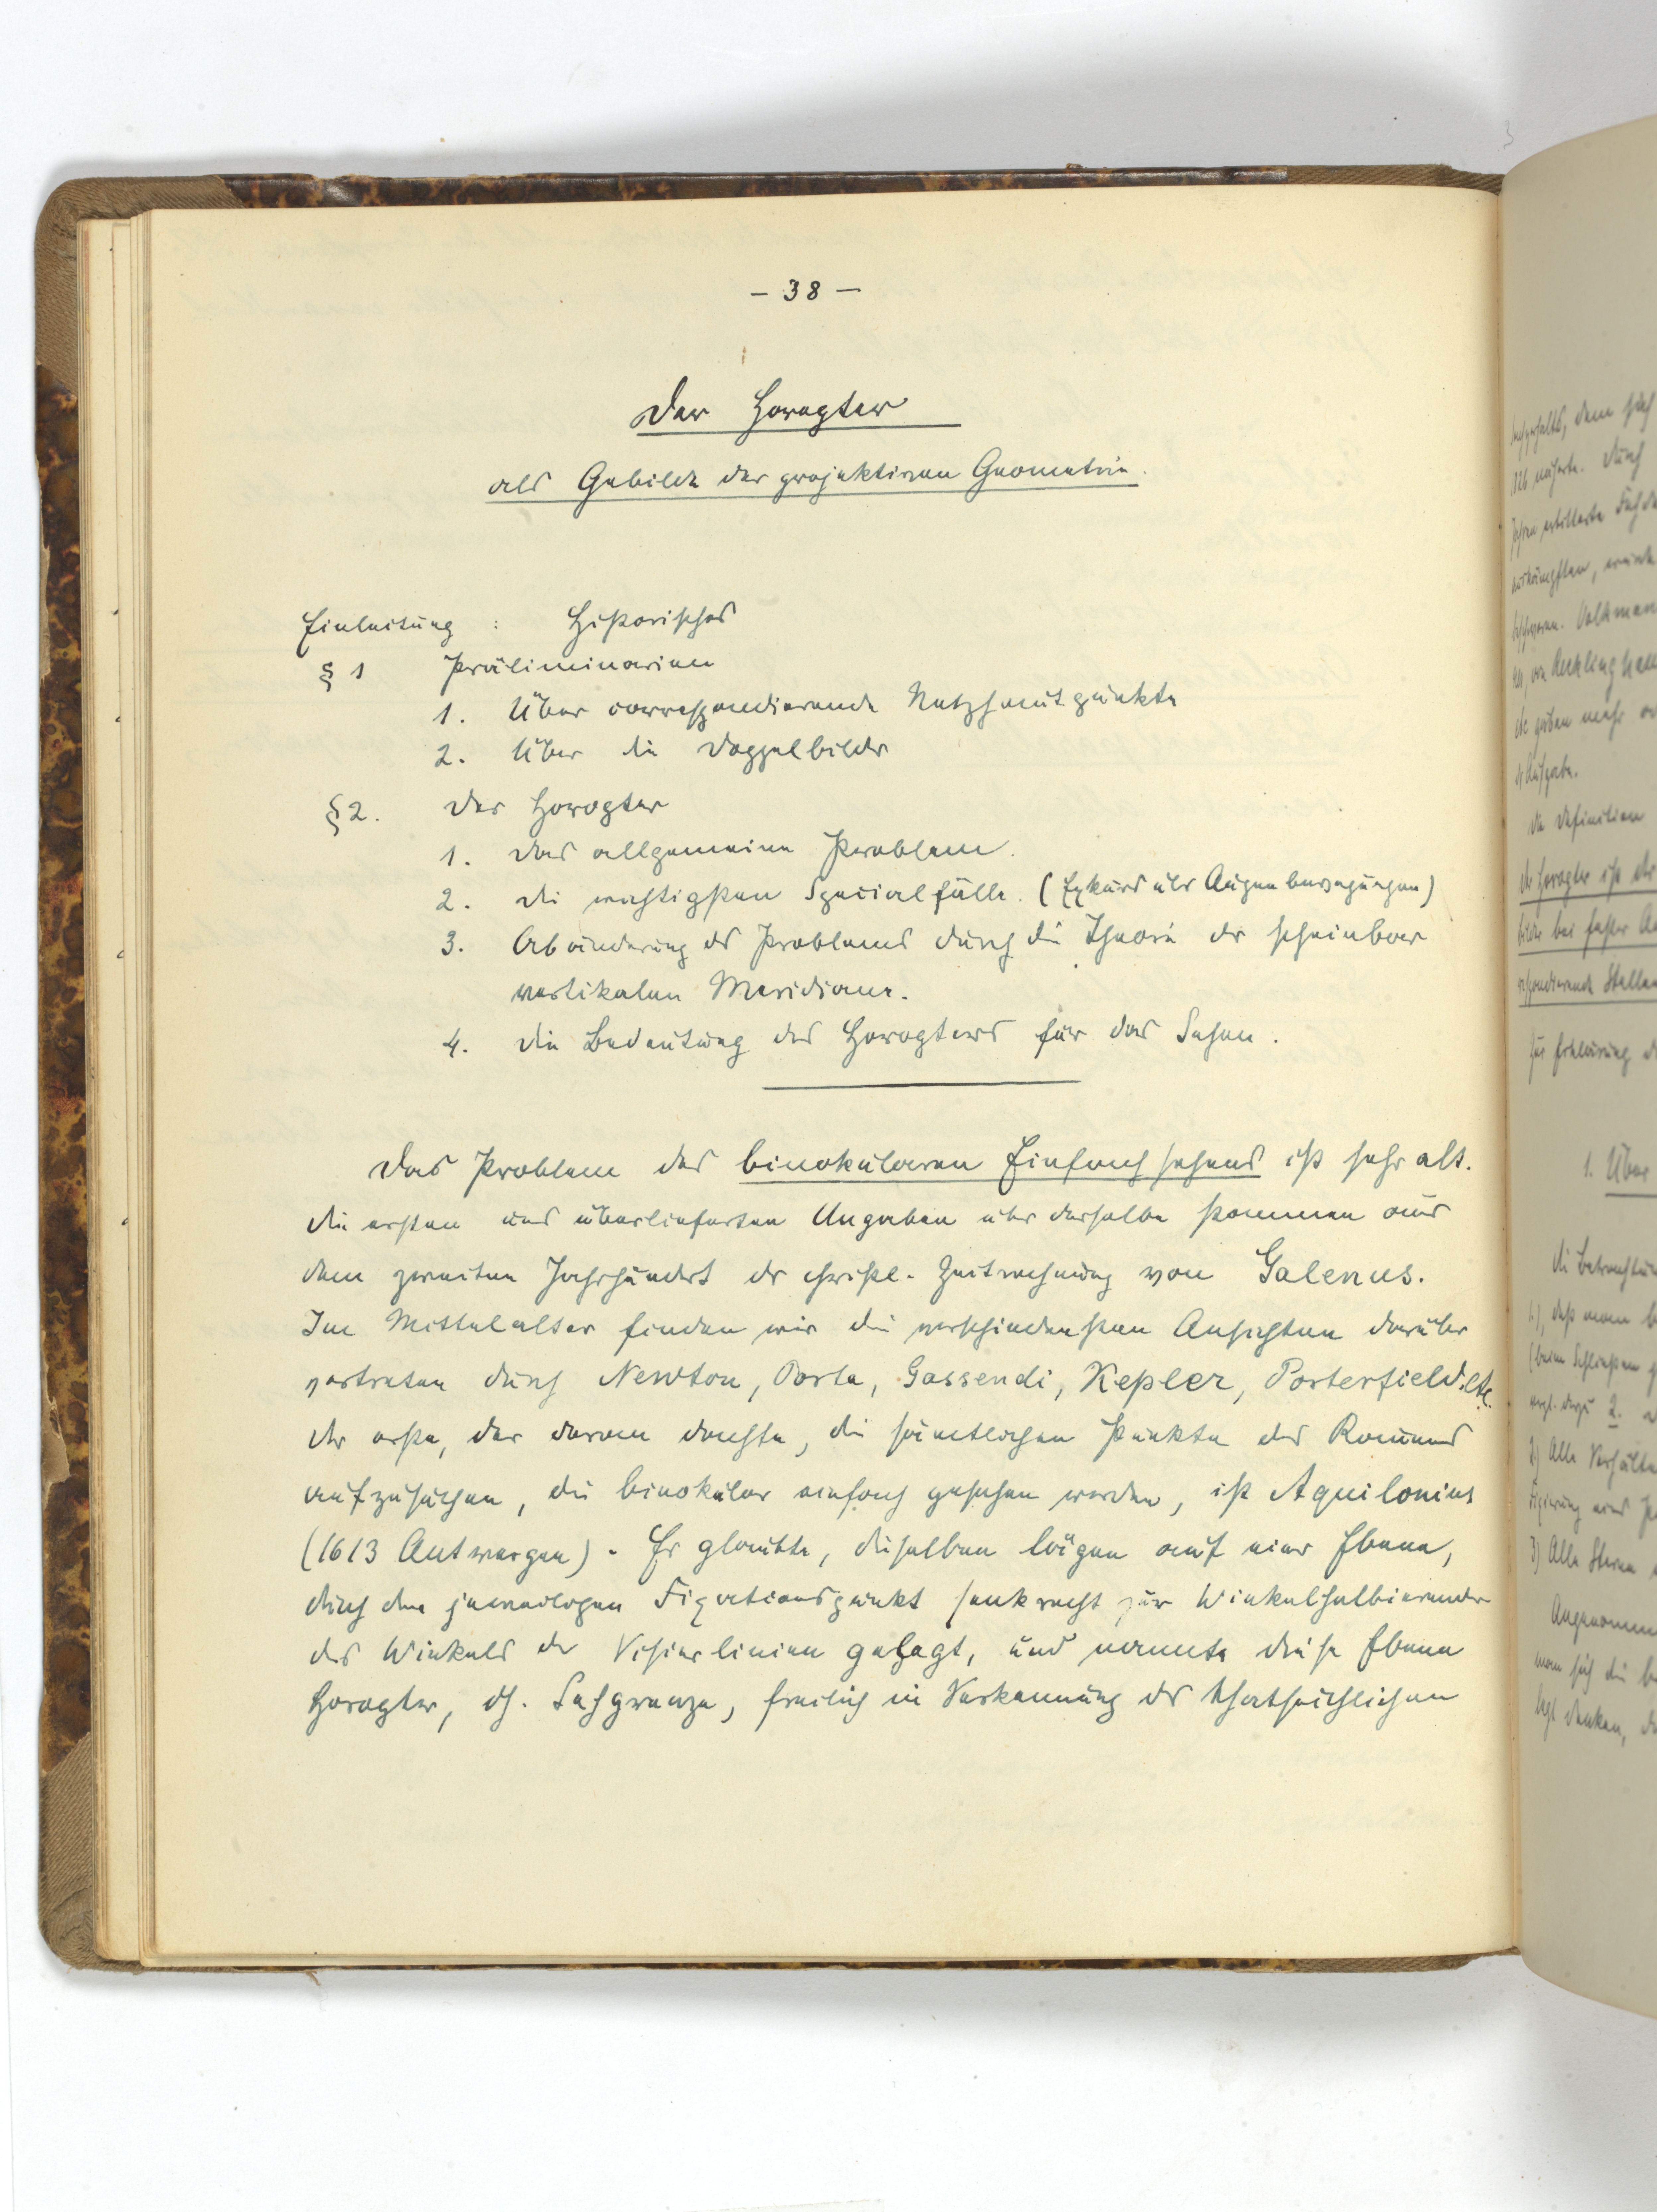 – 38 –
Der Horopter
als Gebilde der projektiven Geometrie.
Einleitung : Historisches
§ 1 Präliminarien
1. Über correspondierende Netzhautpunkte
2. Über die Doppelbilder
§ 2. Der Horopter
1. Das allgemeine Problem.
2. Die wichtigsten Specialfälle. (Exkurs über Augenbewegungen)
3. Abänderung des Problems durch die Theorie der scheinbar
vertikalen Meridiane.
4. Die Bedeutung des Horopters für das Sehen.
Das Problem des binokularen Einfachsehens ist sehr alt.
Die ersten uns überlieferten Angaben über dasselbe stammen aus
dem zweiten Jahrhundert der christl. Zeitrechnung von Galenus.
Im Mittelalter finden wir die verschiedensten Ansichten darüber
vertreten durch Newton, Porta, Gassendi, Kepler, Porterfield etc.
Der erste, der daran dachte, die sämtlichen Punkte des Raumes
aufzusuchen, die binokular einfach gesehen werden, ist Aquilonius
(1613 Antwerpen). Er glaubte, dieselben lägen auf einer Ebene,
durch den jeweiligen Fixationspunkt senkrecht zur Winkelhalbierenden
des Winkels der Visierlinien gelegt, und nannte diese Ebene
Horopter, d.h. Sehgrenze, freilich in Verkennung der thatsächlichen